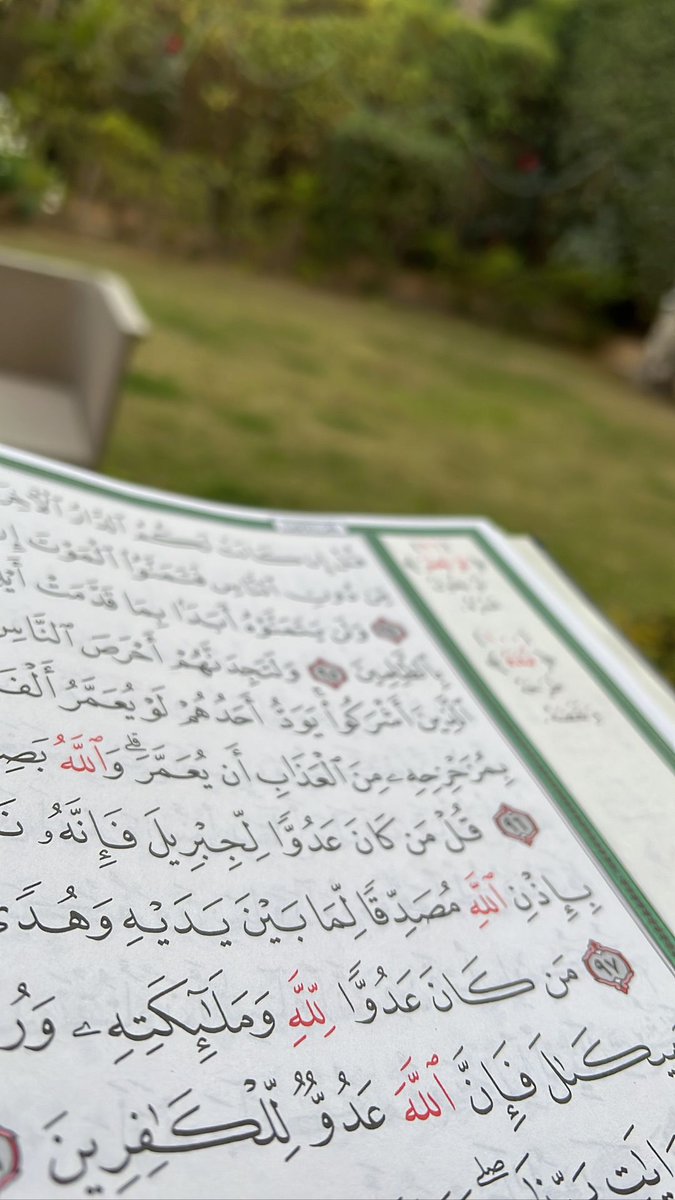 قُلْ إِن كَانَتْ لَكُمُ ٱلدَّارُ
مِّن دُونِ ٱلنَّاسِ فَتَمَنَّوُا۟ ٱلْمَوْتَ إِن
وَلَن يَتَمَنَّوْهُ أَبَدًۢا بِمَا قَدَّمَتْ
بِٱلظَّٰلِمِينَ ٩٥ وَلَتَجِدَنَّهُمْ أَحْرَصَ ٱلنَّاسِ
ٱلَّذِينَ أَشْرَكُوا۟ۚ يَوَدُّ أَحَدُهُمْ لَوْ يُعَمَّرُ أَلْفَ
بِمُزَحْزِحِهِۦ مِنَ ٱلْعَذَابِ أَن يُعَمَّرَۗ وَٱللَّهُ بَصِ
٩٦ قُلْ مَن كَانَ عَدُوًّا لِّجِبْرِيلَ فَإِنَّهُۥ نَ
بِإِذْنِ ٱللَّهِ مُصَدِّقًا لِّمَا بَيْنَ يَدَيْهِ وَهُدًى
٩٧ مَن كَانَ عَدُوًّا لِّلَّهِ وَمَلَٰٓئِكَتِهِۦ وَرُ
مِيكَىٰلَ فَإِنَّ ٱللَّهَ عَدُوٌّ لِّلْكَٰفِرِينَ